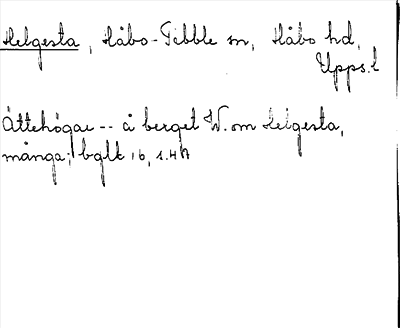 Helgesta, Håbo-Tibble sn, Håbo hd,
Upps. l
Ättehögar -- å berget W. om Helgesta,
många; bglt 16, s. 47